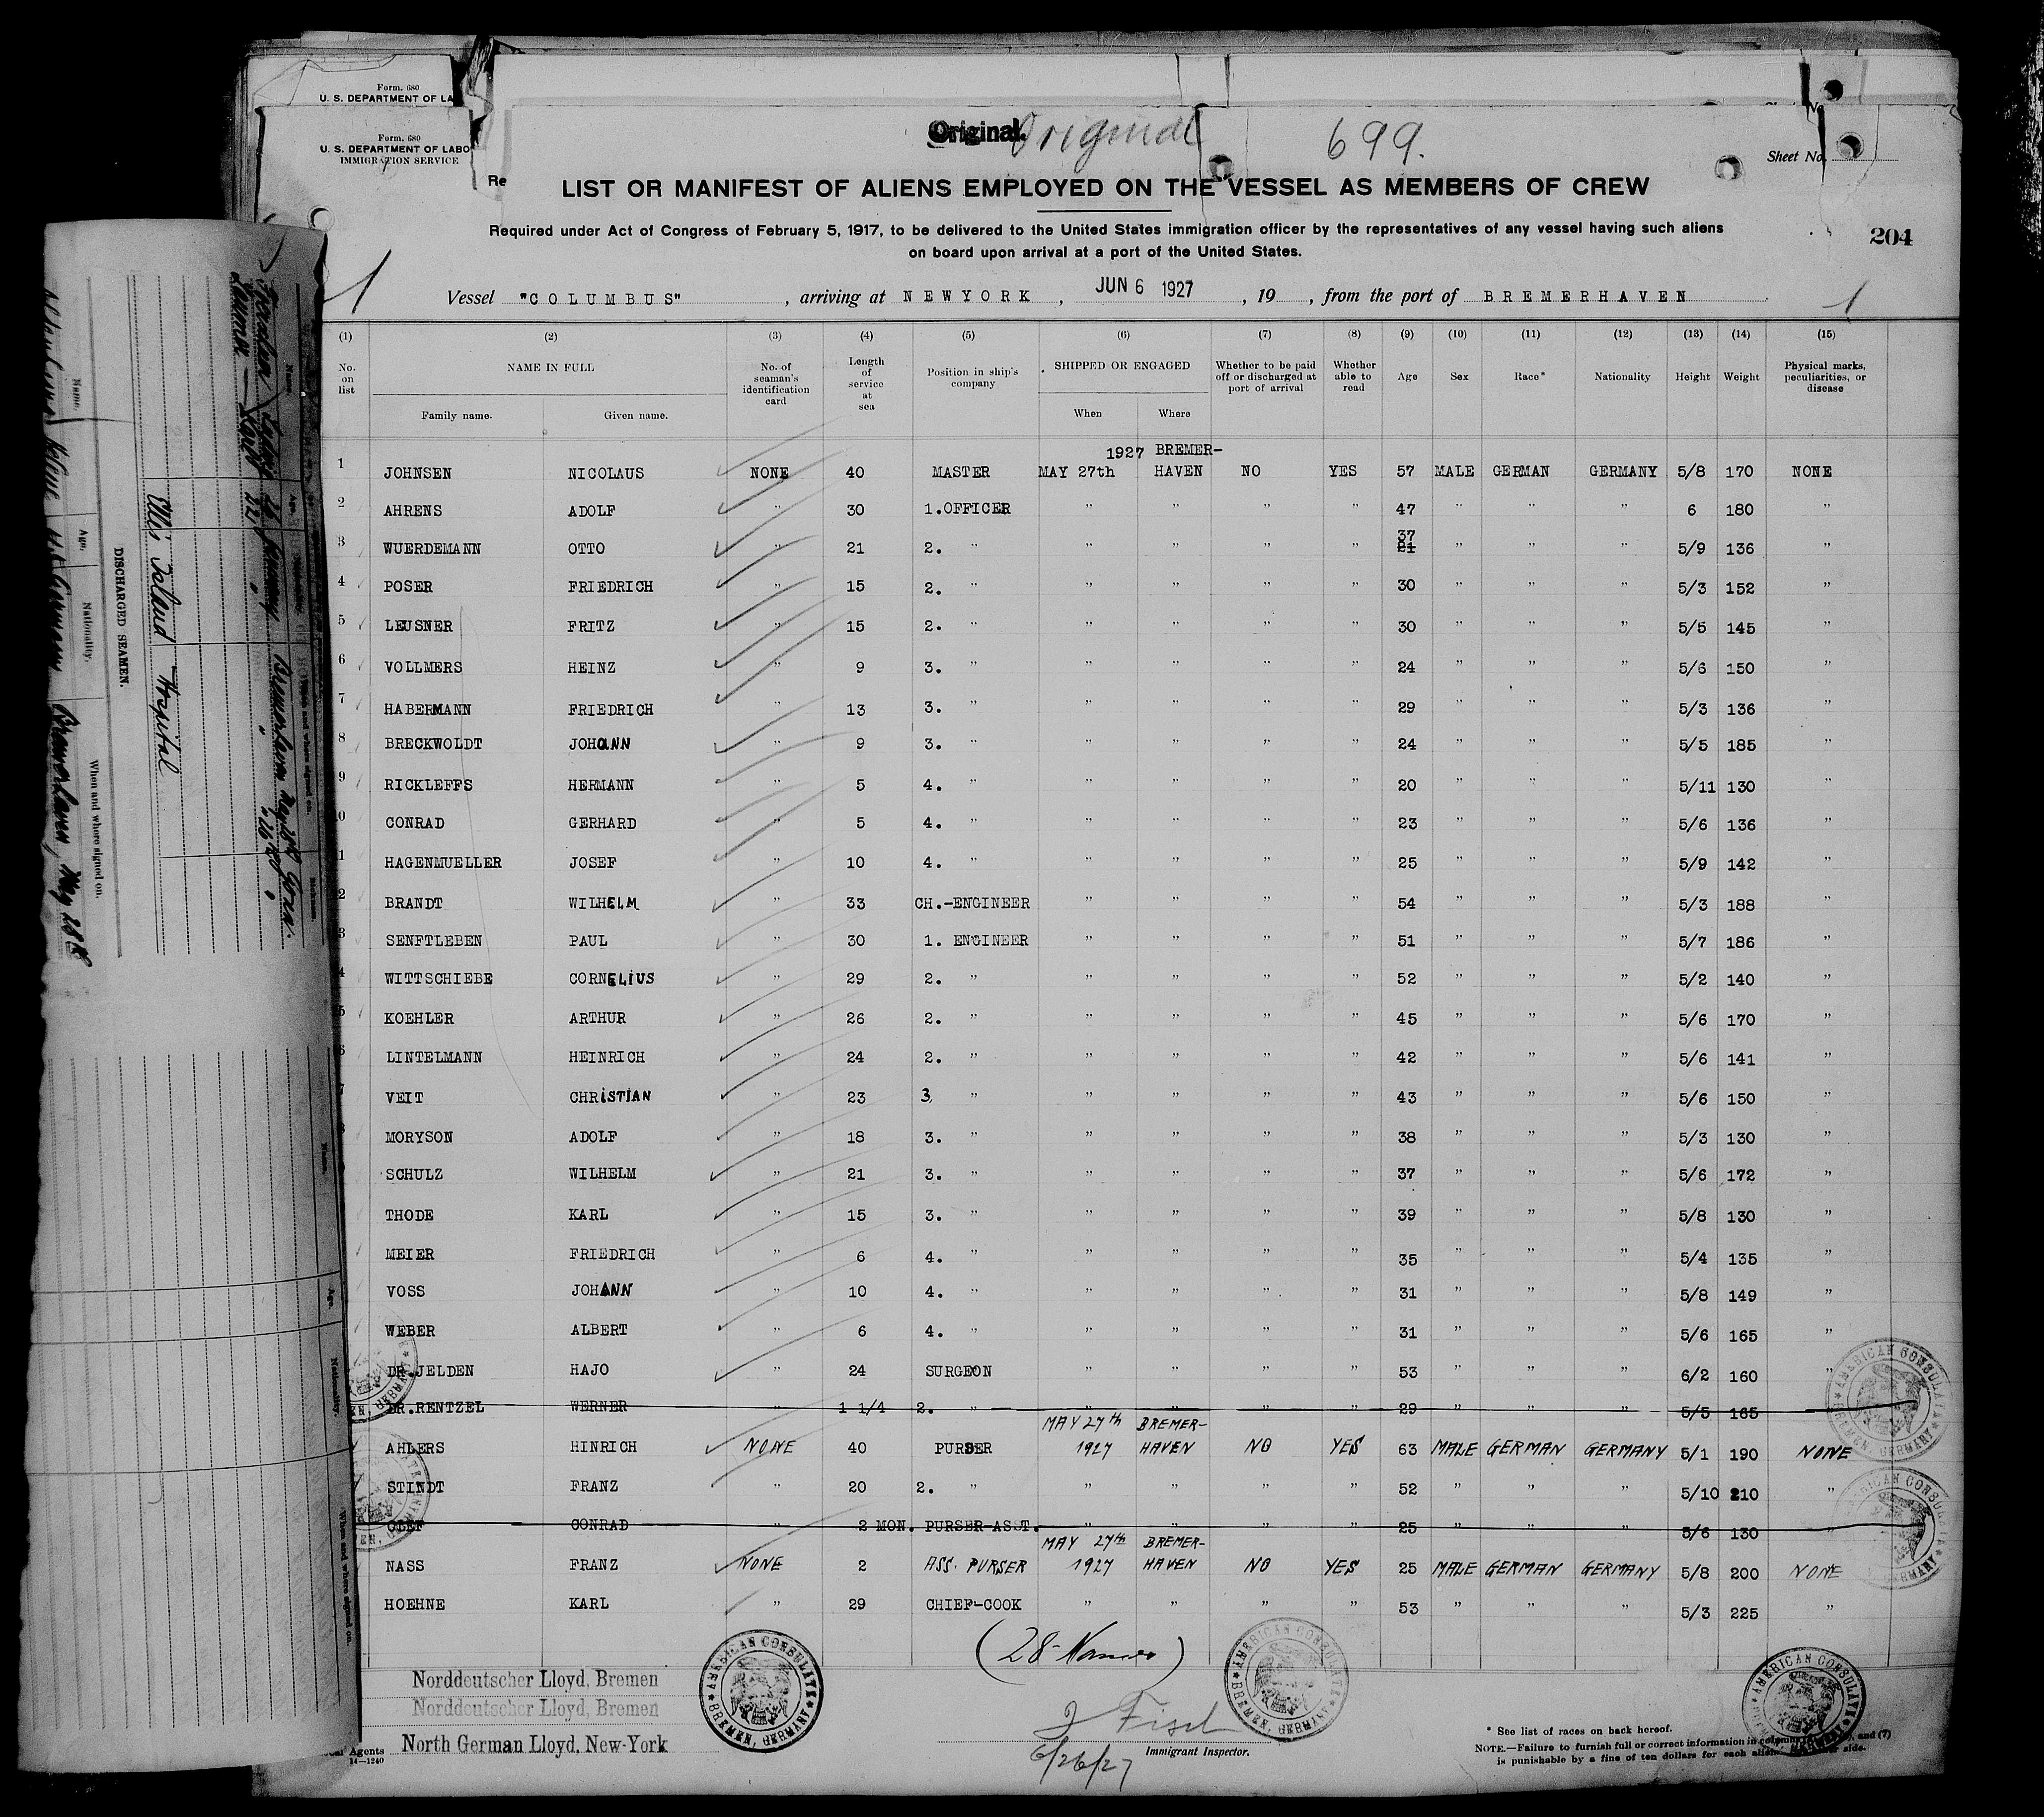 Form. 680
U. S. DEPARTMENT OF LA
Form. 680
U. S. DEPARTMENT OF LABO
IMMIGRATION SERVICE
Original. Original 699.
Sheet No.
Re
LIST OR MANIFEST OF ALIENS EMPLOYED ON THE VESSEL AS MEMBERS OF CREW
Required under Act of Congress of February 5, 1917, to be delivered to the United States immigration officer by the representatives of any vessel having such aliens
on board upon arrival at a port of the United States.
204
1 Vessel "COLUMBUS", arriving at NEWYORK, JUN 6 1927, 19 , from the port of BREMERHAVEN 1
(1) (2) (3) (4) (5) (6) (7) (8) (9) (10) (11) (12) (13) (14) (15)
No. on list NAME IN FULL No. of seaman's identification card Length of service at sea Position in ship's company SHIPPED OR ENGAGED Whether to be paid off or discharged at port of arrival Whether able to read Age Sex Race* Nationality Height Weight Physical marks, peculiarities, or disease
Family name. Given name. When Where
1927 BREMER-
1 JOHNSEN NICOLAUS NONE 40 MASTER MAY 27th HAVEN NO YES 57 MALE GERMAN GERMANY 5/8 170 NONE
2 AHRENS ADOLF " 30 1.OFFICER " " " " 47 " " " 6 180 "
37
3 WUERDEMANN OTTO " 21 2. " " " " " 21 " " " 5/9 136 "
4 POSER FRIEDRICH " 15 2. " " " " " 30 " " " 5/3 152 "
5 LEUSNER FRITZ " 15 2. " " " " " 30 " " " 5/5 145 "
6 VOLLMERS HEINZ " 9 3. " " " " " 24 " " " 5/6 150 "
7 HABERMANN FRIEDRICH " 13 3. " " " " " 29 " " " 5/3 136 "
8 BRECKWOLDT JOHANN " 9 3. " " " " " 24 " " " 5/5 185 "
9 RICKLEFFS HERMANN " 5 4. " " " " " 20 " " " 5/11 130 "
10 CONRAD GERHARD " 5 4. " " " " " 23 " " " 5/6 136 "
1 HAGENMUELLER JOSEF " 10 4. " " " " " 25 " " " 5/9 142 "
2 BRANDT WILHELM " 33 CH.-ENGINEER " " " " 54 " " " 5/3 188 "
3 SENFTLEBEN PAUL " 30 1. ENGINEER " " " " 51 " " " 5/7 186 "
4 WITTSCHIEBE CORNELIUS " 29 2. " " " " " 52 " " " 5/2 140 "
5 KOEHLER ARTHUR " 26 2. " " " " " 45 " " " 5/6 170 "
6 LINTELMANN HEINRICH " 24 2. " " " " " 42 " " " 5/6 141 "
7 VEIT CHRISTIAN " 23 3 " " " " " 43 " " " 5/6 150 "
8 MORYSON ADOLF " 18 3. " " " " " 38 " " " 5/3 130 "
SCHULZ WILHELM " 21 3. " " " " " 37 " " " 5/6 172 "
THODE KARL " 15 3. " " " " " 39 " " " 5/8 130 "
MEIER FRIEDRICH " 6 4. " " " " " 35 " " " 5/4 135 "
VOSS JOHANN " 10 4. " " " " " 31 " " " 5/8 149 "
WEBER ALBERT " 6 4. " " " " " 31 " " " 5/6 165 "
DR.JELDEN HAJO " 24 SURGEON " " " " 53 " " " 6/2 160 "
DR.RENTZEL WERNER " 1 1/4 2. " " " " " 29 " " " 5/5 165
MAY 27th BREMER-
AHLERS HINRICH NONE 40 PURSER 1927 HAVEN NO YES 63 MALE GERMAN GERMANY 5/1 190 NONE
STINDT FRANZ " 20 2. " " " " " 52 " " " 5/10 210 "
CONRAD " 2 MON. PURSER-ASST. " " " " 25 " " " 5/6 130 "
MAY 27th BREMER-
NASS FRANZ NONE 2 ASS. PURSER 1927 HAVEN NO YES 25 MALE GERMAN GERMANY 5/8 200 NONE
HOEHNE KARL " 29 CHIEF-COOK " " " " 53 " " " 5/3 225 "
(28 Names)
Norddeutscher Lloyd, Bremen
Norddeutscher Lloyd, Bremen
North German Lloyd, New-York
Agents
14—1240
AMERICAN CONSULATE BREMEN, GERMANY
AMERICAN CONSULATE BREMEN, GERMANY
AMERICAN CONSULATE BREMEN, GERMANY
AMERICAN CONSULATE BREMEN, GERMANY
AMERICAN CONSULATE GERMANY
6/26/27
Immigrant Inspector.
* See list of races on back hereof.
NOTE.—Failure to furnish full or correct information in and (7)
is punishable by a fine of ten dollars for each alien side.
Name. Age. Nationality. When and where signed on.
German Bremerhaven, May 28
DISCHARGED SEAMEN.
Ellis Island Hospital
Name. Age. Nationality. When and where signed on.